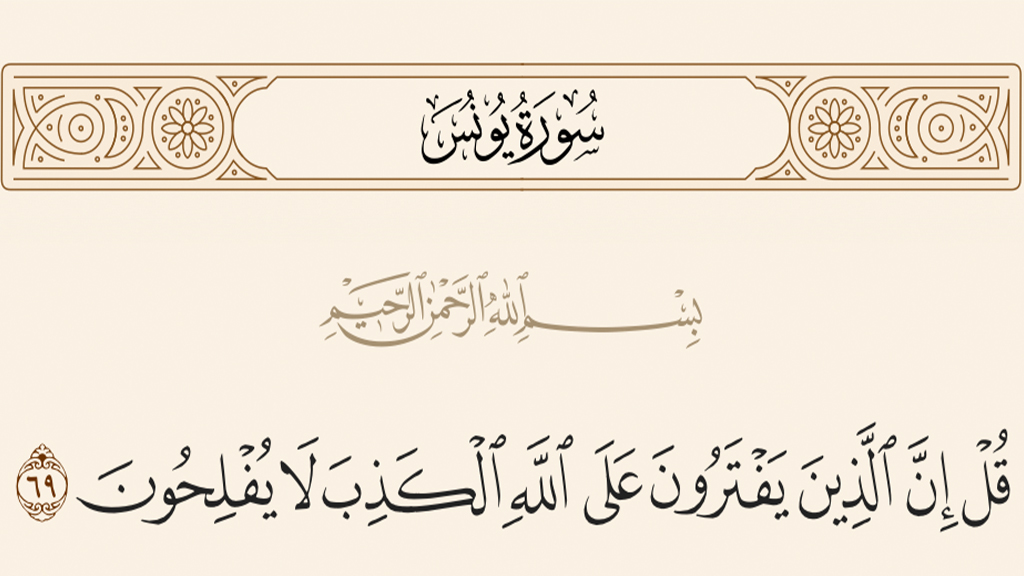 سُورَةُ يُونُسَ
بِسْمِ ٱللَّهِ ٱلرَّحْمَٰنِ ٱلرَّحِيمِ
قُلْ إِنَّ ٱلَّذِينَ يَفْتَرُونَ عَلَى ٱللَّهِ ٱلْكَذِبَ لَا يُفْلِحُونَ ٦٩